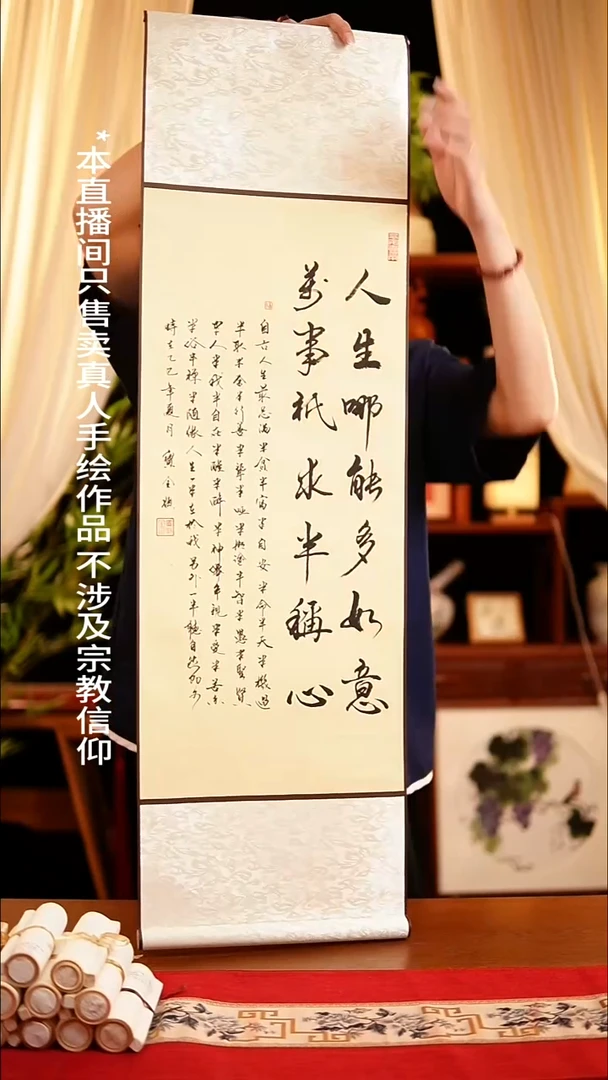 人生哪能多如意
萬事祇求半稱心
自古人生最忌滿半貧半富半自安半命半天半機遇
半取半舍半行善半聾半啞半糊塗半智半愚半聖賢
半人半我半自在半醒半醉半神仙半親半愛半苦樂
半俗半禪半隨緣人生一半在於我另外一半聽自然
時在乙巳年夏月
*本直播间只售卖真人手绘作品 不涉及宗教信仰